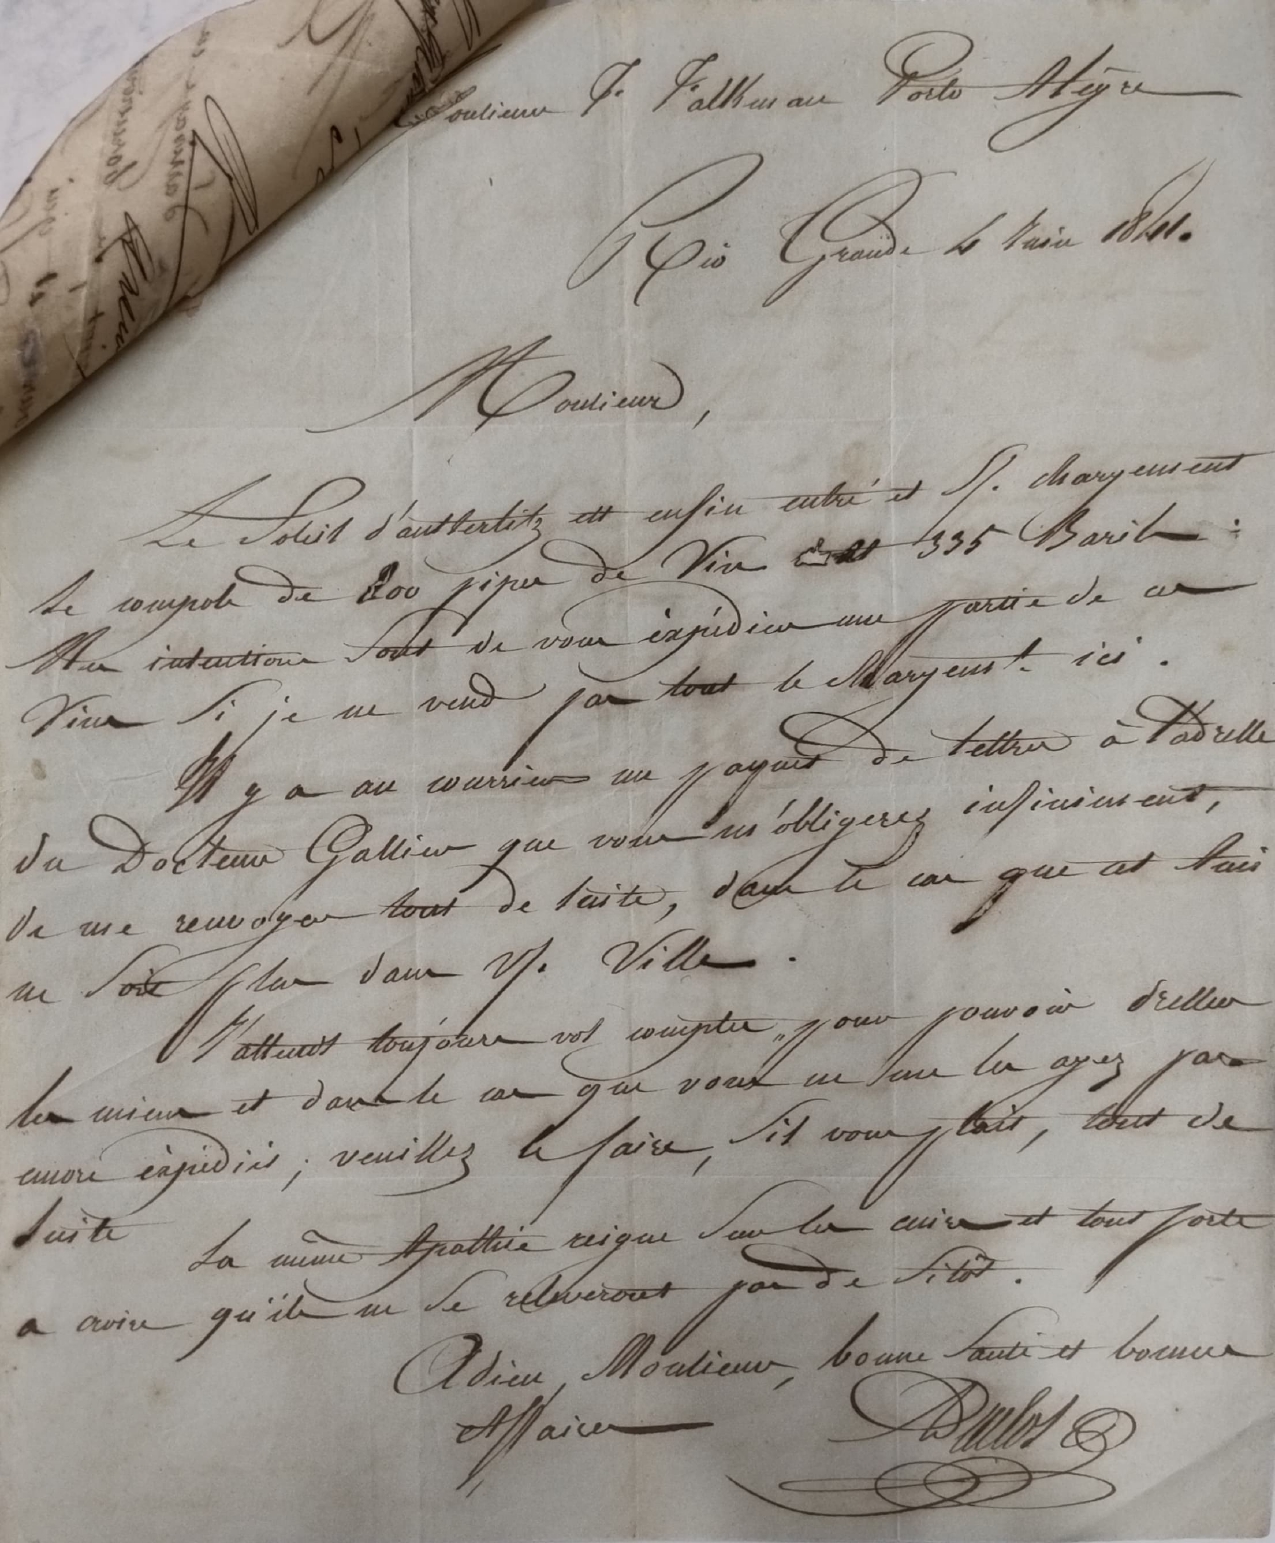 Monsieur F. Falkman Porto Alègre
Rio Grande 4 Juin 1841.
Monsieur,
Le Soleil d'austerlitz est enfin entré et S/. chargement
se compose de 200 pipes de Vin et 335 Barils :
Mes intentions sont de vous èxpédier une partie de ces
Vins si je ne vend pas tout le chargemt. ici.
Il y a au courrier un paquet de lettres à l'adresse
du Docteur Gallier que vous m'obligerez infiniment,
de me renvoyer tout de suite, dans le cas que cet Suis
ne soit plus dans V/. Ville.
J'attends toujours vos comptes, pour pouvoir dresser
les miens et dans le cas que vous ne me les ayez pas
encore èxpédiés, veuillez le faire, s'il vous plait, tout de
suite
La même Apathie reigne sur les cuirs et tout porte
a croire qu'ils ne se releveront pas de sitôt.
Adieu, Monsieur, bonne santé et bonnes
Affaires